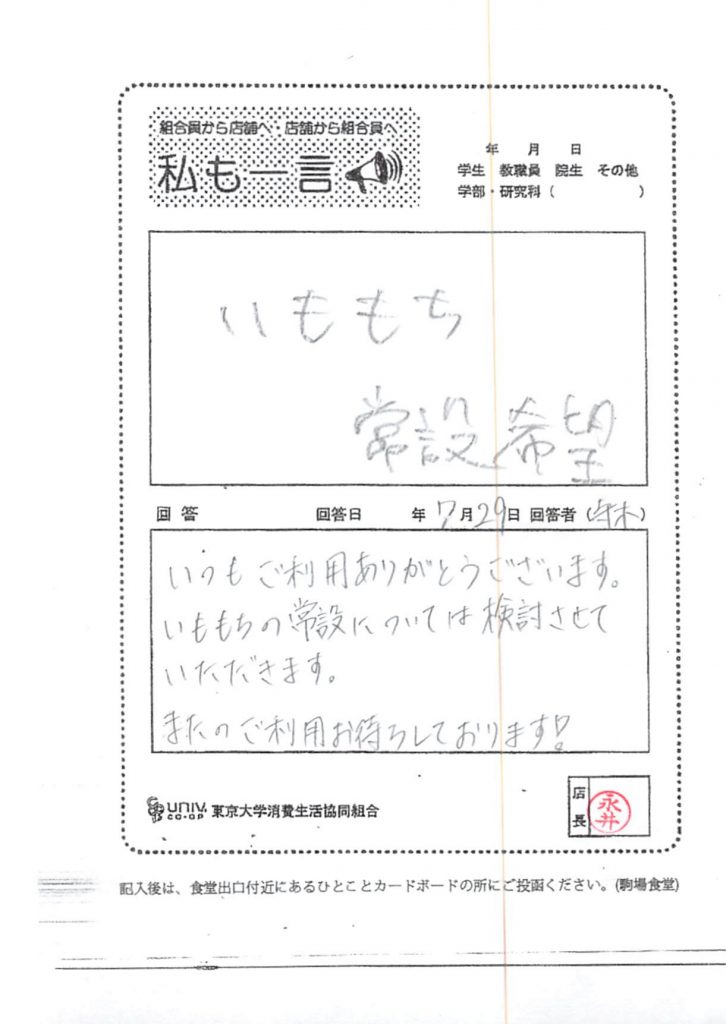 組合員から店舗へ 店舗から組合員へ
私も一言
年 月 日
学生 教職員 院生 その他
学部・研究科( )
いももち
常設希望
回答 回答日 年 7月29日 回答者( )
いつもご利用ありがとうございます。
いももちの常設については検討させて
いただきます。
またのご利用お待ちしております!
UNIV. CO-OP 東京大学消費生活協同組合
店長 永井
記入後は、食堂出口付近にあるひとことカードボードの所にご投函ください。(駒場食堂)